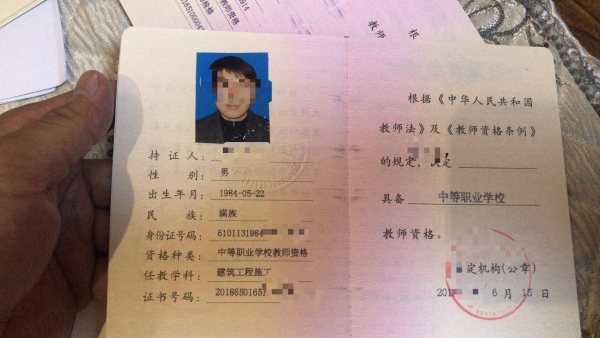 持证人：
性 别： 男
出生年月： 1984-05-22
民 族： 满族
身份证号码： 6101131984
资格种类： 中等职业学校教师资格
任教学科： 建筑工程施工
证书号码： 20186501651
根据《中华人民共和国
教师法》及《教师资格条例》
的规定，决定
具备 中等职业学校
教师资格。
定机构(公章)
201 6 月 15 日
根
教师